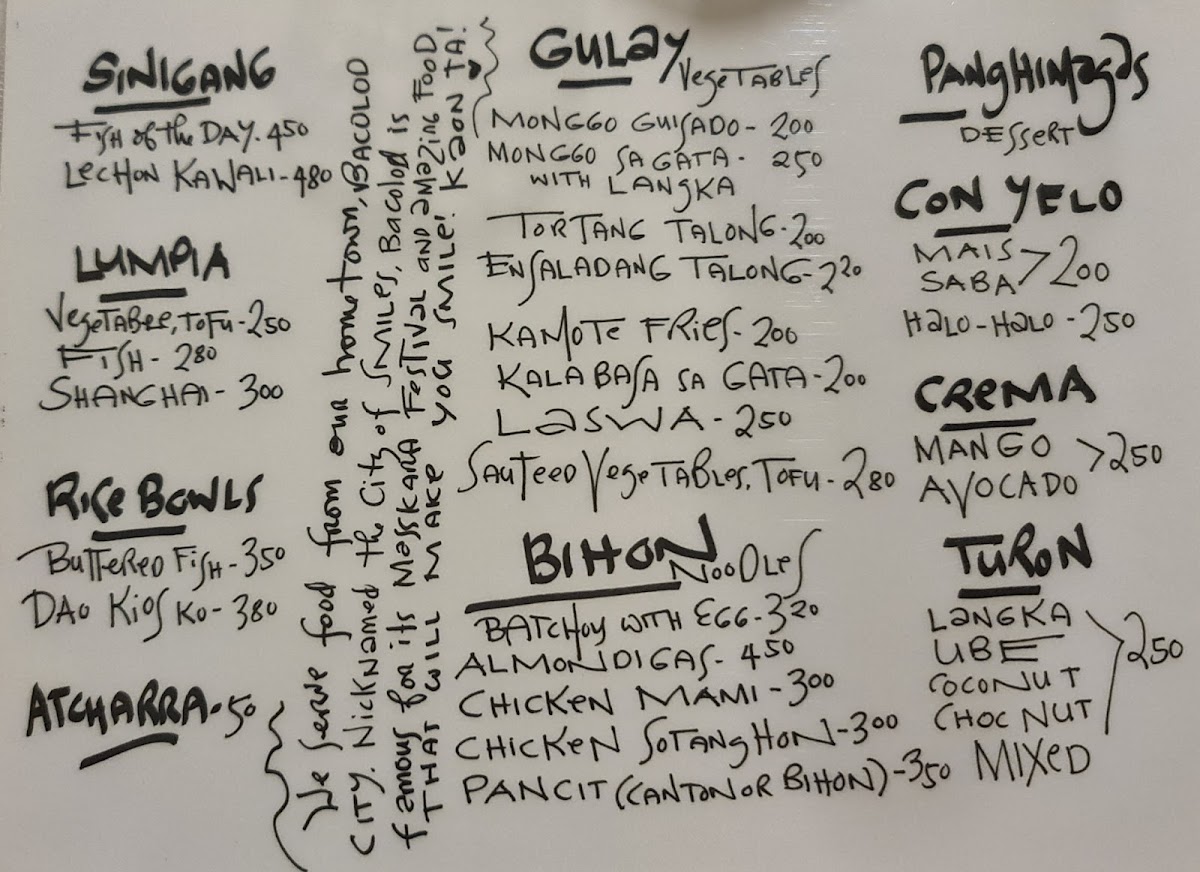 SINIGANG
FISH of the DAY. 450
LECHON KAWALI - 480
LUMPIA
VegeTABLE, TOFU - 250
FISH - 280
SHANGHAI - 300
RICe BOWLS
BUTTeReD FISH - 350
DAO KIOSKO - 380
ATCHARRA - 50
We serve food from our hometown, BACOLOD
CITY. NICKNAMED the City of SMILES, Bacolod is
famous for its MassKARA FESTIVAL and aMaZING FOOD
THAT WILL MAKE YOU SMILE! KAON TA!
GULay
VegeTABLeS
MONGGO GUISADO - 200
MONGGO SA GATA - 250
WITH LANGKA
TORTANG TALONG - 200
ENSALADANG TALONG - 220
KAMOTE FRIES - 200
KALABASA SA GATA - 200
LaSWA - 250
SAUTeeD VegeTABLeS, TOFU - 280
BIHON
NOODLeS
BATCHOY WITH EGG - 320
ALMONDIGAS - 450
CHICKeN MAMI - 300
CHICKeN SOTANGHON - 300
PANCIT (CANTON OR BIHON) - 350
PANGHIMagaS
DESSERT
CON YELO
MAIS
SABA > 200
HaLO-HaLO - 250
CReMA
MANGO
AVOCADO > 250
TURON
LaNGKA
UBE
COCONUT
CHOC NUT
250
MIXeD